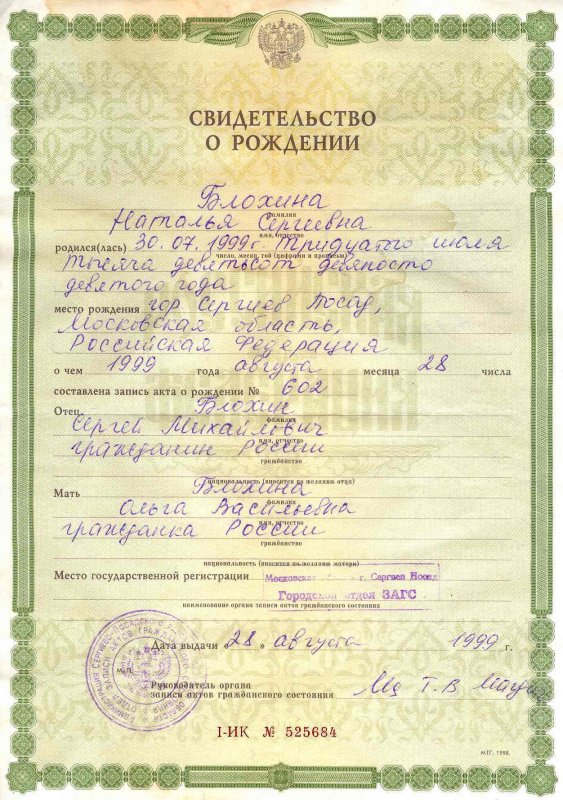 СВИДЕТЕЛЬСТВО
О РОЖДЕНИИ
Блохина
фамилия
Наталья Сергеевна
имя, отчество
родился(лась) 30.07.1999г Тридцатого июля
число, месяц, год (цифрами и прописью)
тысяча девятьсот девяносто
девятого года
место рождения гор Сергиев Посад,
Московская область,
Российская Федерация
о чем 1999 года августа месяца 28 числа
составлена запись акта о рождении № 602
Отец Блохин
фамилия
Сергей Михайлович
имя, отчество
гражданин России
гражданство
национальность (вносится по желанию отца)
Мать Блохина
фамилия
Ольга Васильевна
имя, отчество
гражданка России
гражданство
национальность (вносится по желанию матери)
Место государственной регистрации Московская г. Сергиев Посад
Городской отдел ЗАГС
наименование органа записи актов гражданского состояния
Дата выдачи 28 » августа 1999 г.
М.П.
Руководитель органа
записи актов гражданского состояния Т.В
I-ИК № 525684
МТГ. 1998.